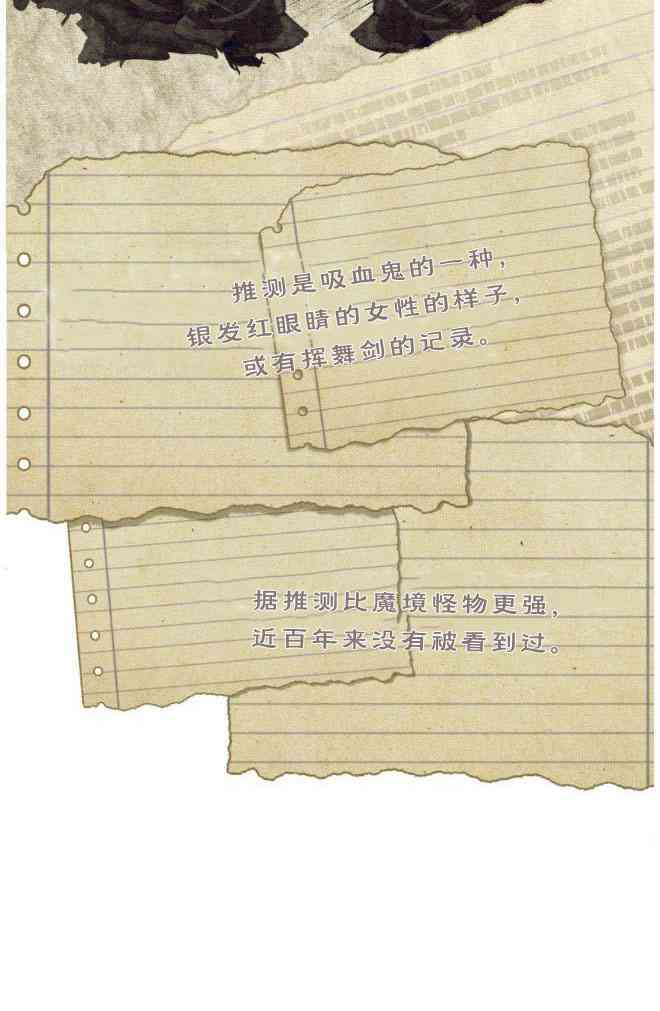 推测是吸血鬼的一种，
银发红眼睛的女性的样子，
或有挥舞剑的记录。
据推测比魔境怪物更强，
近百年来没有被看到过。